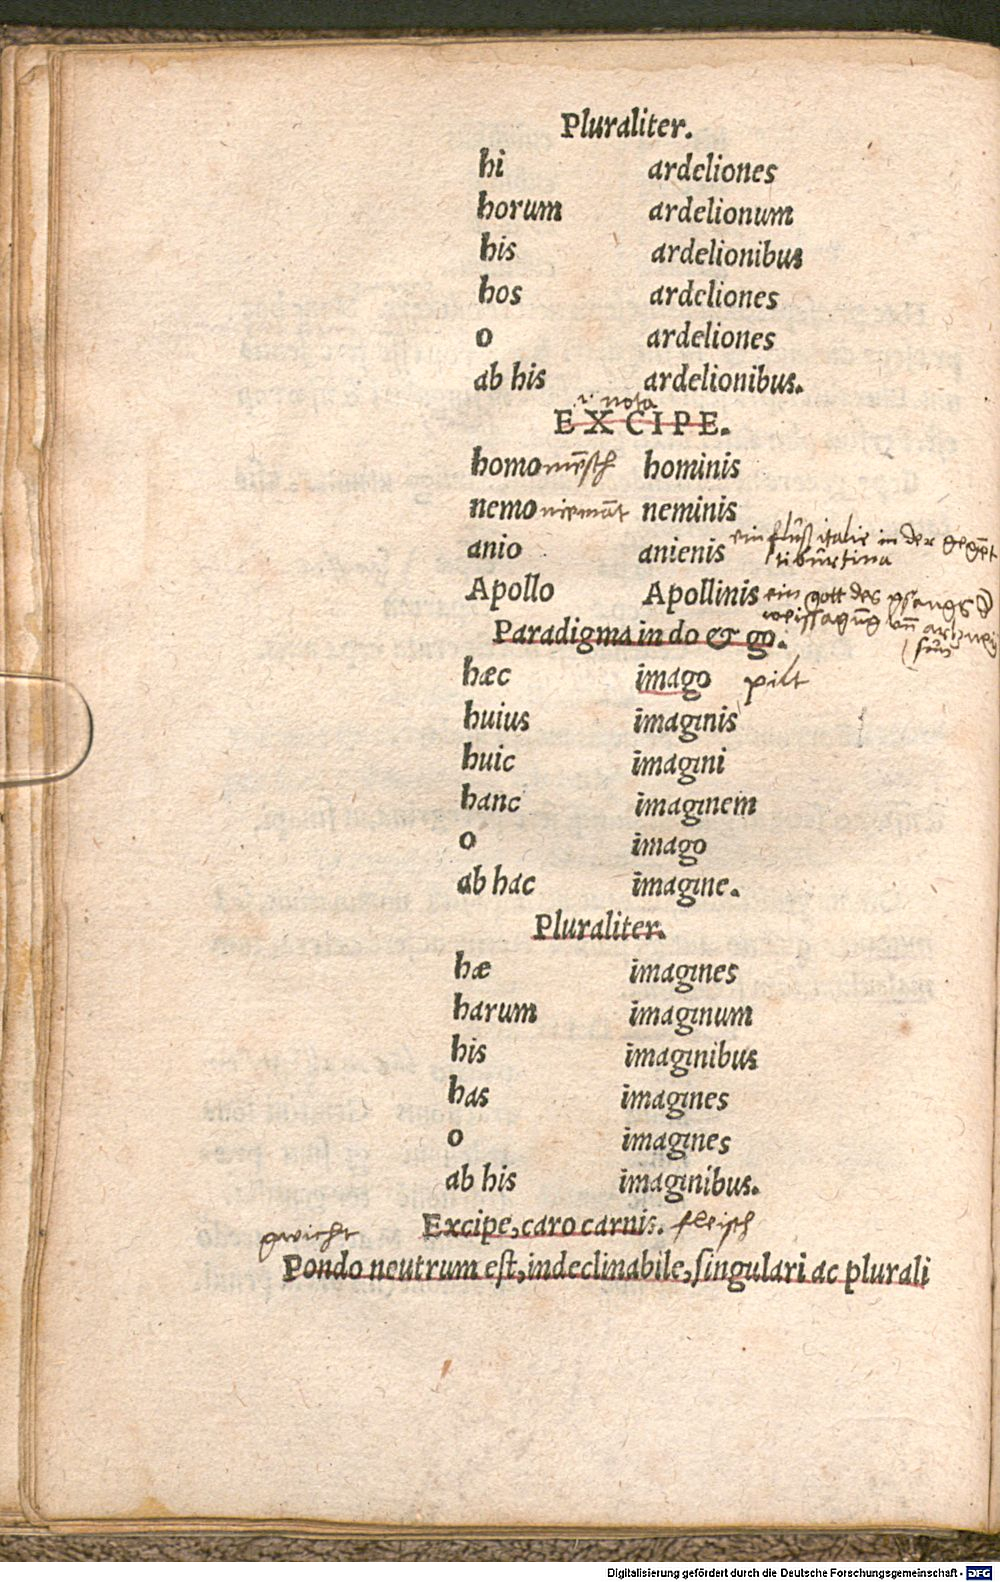 Pluraliter.
hi ardeliones
horum ardelionum
his ardelionibus
hos ardeliones
o ardeliones
ab his ardelionibus.
nota
EXCIPE.
homo mẽsch hominis
nemo niemãt neminis
anio anienis ein flus italie in der gegẽt
tiburtina
Apollo Apollinis ein gott des gsangs
weissagũg vñ artzney
Paradigma in do & go.
hæc imago pilt
huius imaginis
huic imagini
hanc imaginem
o imago
ab hac imagine.
Pluraliter.
hæ imagines
harum imaginum
his imaginibus
has imagines
o imagines
ab his imaginibus.
gwicht Excipe, caro carnis. fleisch
Pondo neutrum est, indeclinabile, singulari ac plurali
Digitalisierung gefördert durch die Deutsche Forschungsgemeinschaft - DFG